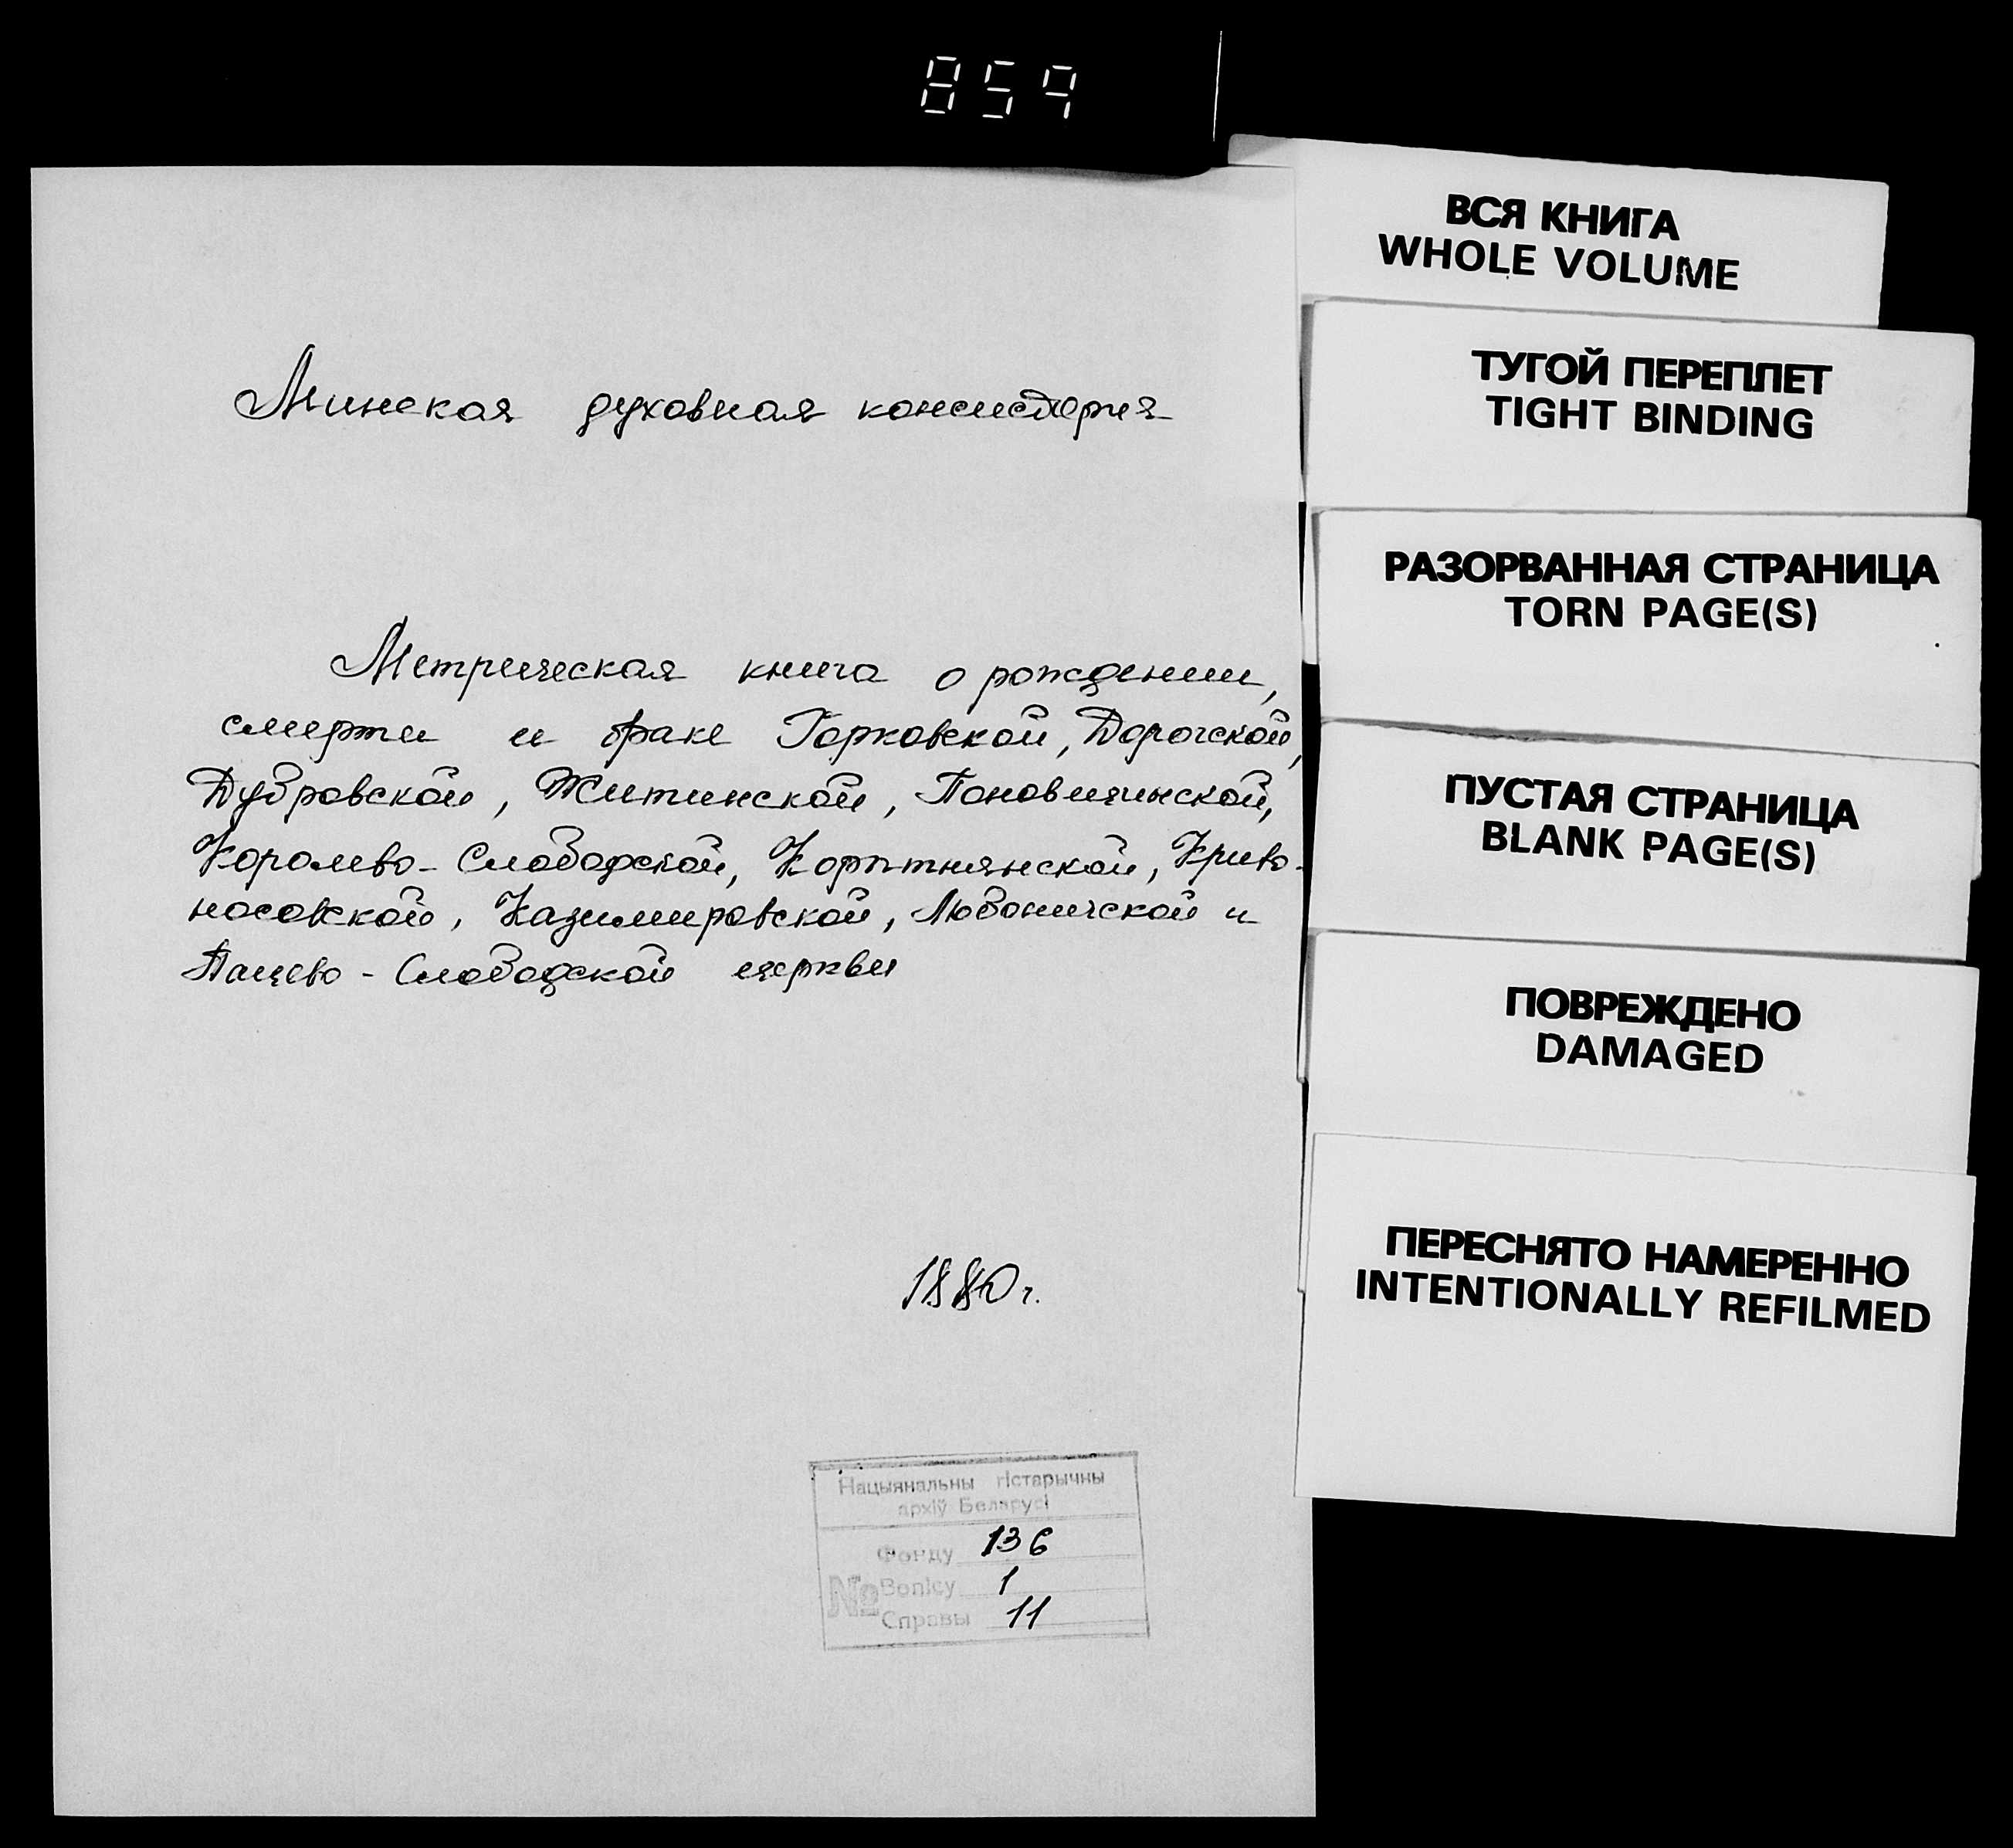 859
Минская духовная консистория
Метрическая книга о рождении,
смерти и браке Горковской, Дорогской,
Дубровской, Житинской, Поновичинской,
Королево-Слободской, Кортнянской, Криво-
носовской, Казимировской, Любоничской и
Пацево-Слободской церкви
1880 г.
Нацыянальны гістарычны
архіў Беларусі
Фонду 136
№ Вопісу 1
Справы 11
ВСЯ КНИГА
WHOLE VOLUME
ТУГОЙ ПЕРЕПЛЕТ
TIGHT BINDING
РАЗОРВАННАЯ СТРАНИЦА
TORN PAGE(S)
ПУСТАЯ СТРАНИЦА
BLANK PAGE(S)
ПОВРЕЖДЕНО
DAMAGED
ПЕРЕСНЯТО НАМЕРЕННО
INTENTIONALLY REFILMED